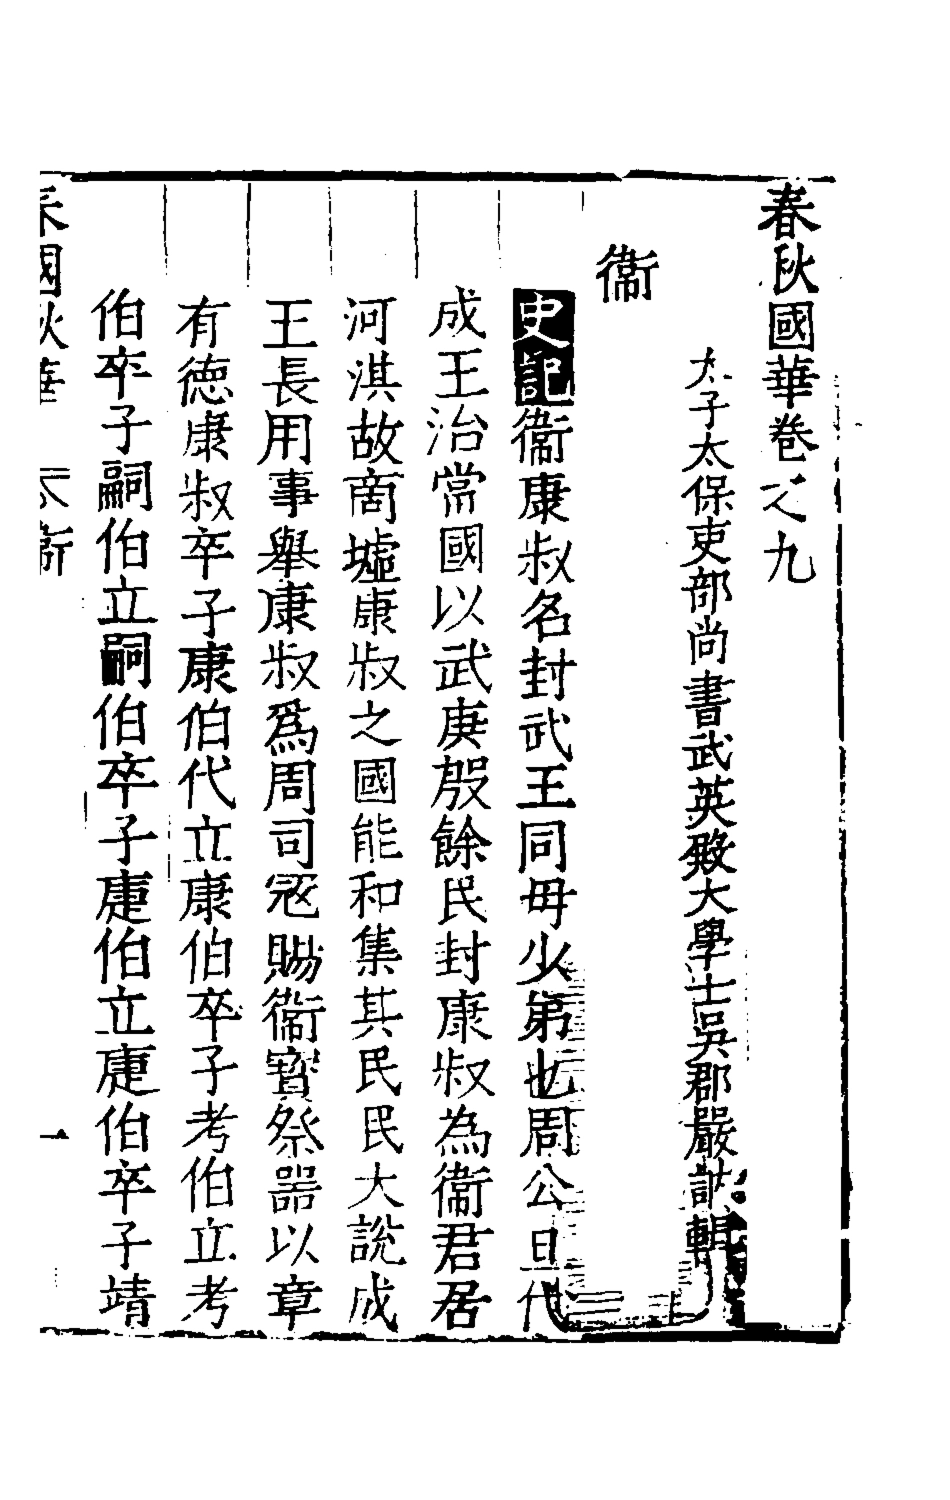 春秋國華卷之九
太子太保吏部尚書武英殿大學士吳郡嚴訥輯
衞
史記衞康叔名封武王同母少第也周公旦代
成王治當國以武庚殷餘民封康叔為衞君居
河淇故商墟康叔之國能和集其民民大說成
王長用事舉康叔爲周司寇賜衞寳祭器以章
有德康叔卒子康伯代立康伯卒子考伯立考
伯卒子嗣伯立嗣伯卒子疌伯立疌伯卒子靖
春國秋華 卷 衞 一